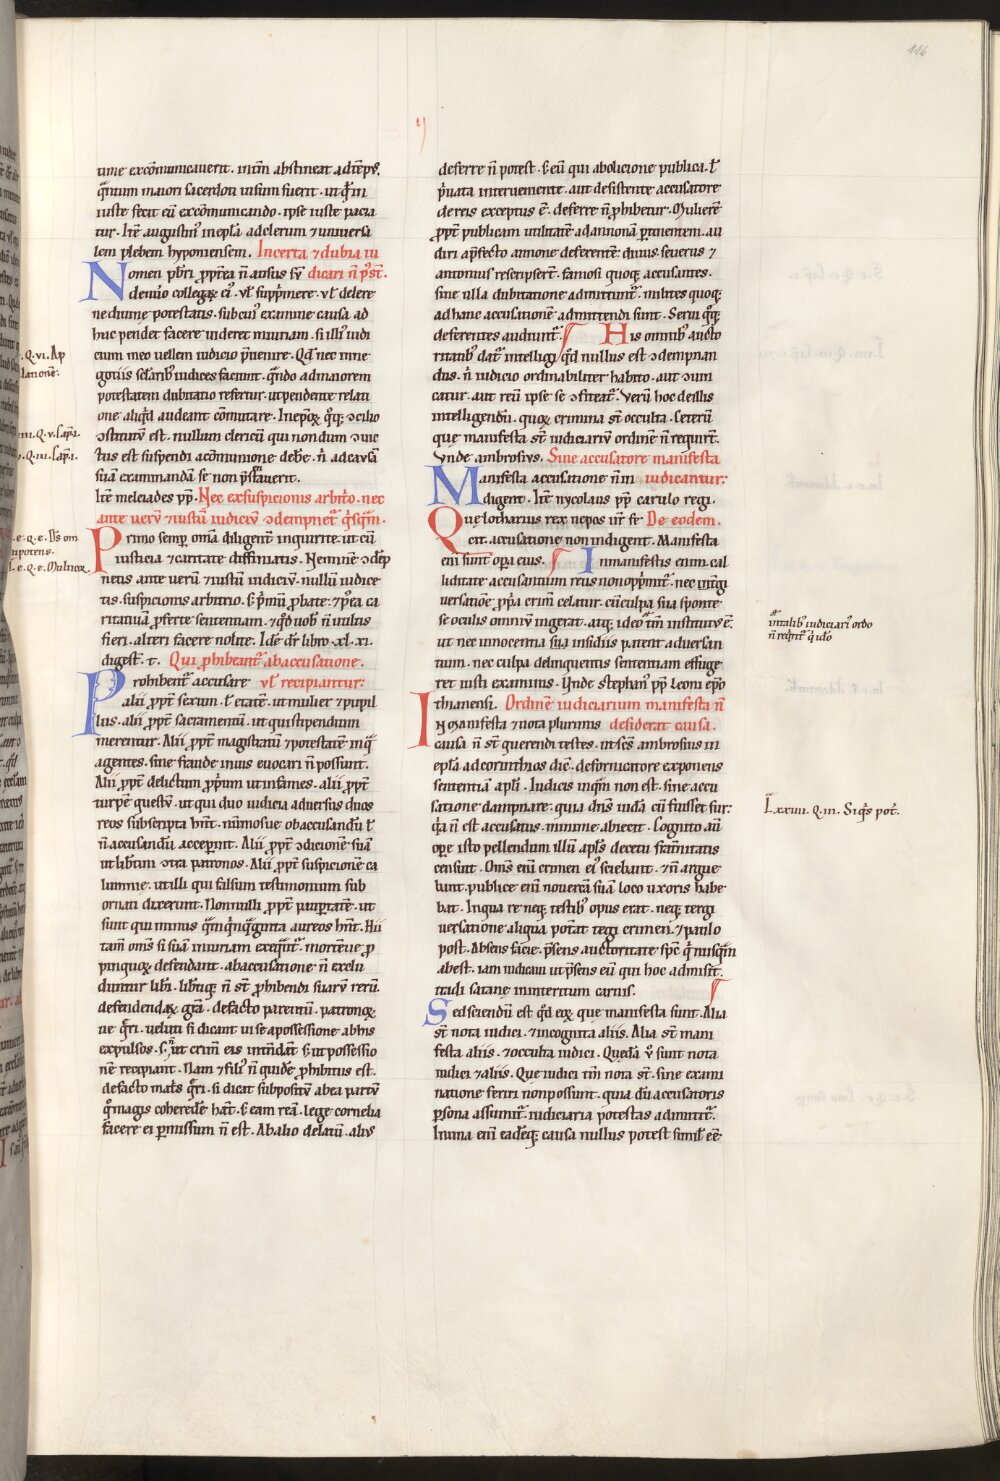 116
ij
tune excōmunicaverit. intīm abstineat ad tēpꝰ.
q̄ntum maiori sacerdoti visum fuerit. ut q̄ī
iuste fecit eū excōmunicando. ipse iuste pacia
tur. Itē augustinꝰ in epl̄a ad clerum ⁊ universā
lem plebem hyponiensem. Incerta ⁊ dubia iu
Nomen pb̄ri ꝓpt̄ea n̄ ausus sū dicari n̄ p̄st̄.
de nūo collegaꝝ eiꝰ. vl̄ supp̄mere. vl̄ delere
ne divine potestatis. sub cuiꝰ examine causa ad
huc pendet facere viderer iniuriam. si illiꝰ iudi
cium meo vellem iudicio p̄venire. Qd̄ nec in ne
gotiis sclaribꝰ iudices faciunt. q̄ndo ad maiorem
potestatem dubitatio refertur. ut pendente relati
one aliqd̄ audeant cōmutare. In ep̄oꝝ q̊q̄ꝫ ɔcilio
ɔstitutū est. nullum clericū qui nondum ɔvic
tus est suspendi a cōmunione debe. n̄ ad causā
suā examinandā se non p̄stauerit.
Itē melciades pp̄. Nec ex suspicionis arbit̄o. nec
ante verū ⁊ iustū iudiciū ɔdempnet̄ q̄sq̄m.
Primo semꝑ om̄ia diligent̄ inquirite. ut cū
iusticia ⁊ caritate diffiniatis. Neminē ɔdēp
netis ante verū ⁊ iustū indiciū. nullū iudice
tis. suspicionis arbitrio. s; p̄mū ꝓbate. ⁊ p̄ea ca
ritativā ꝓferte sententiam. ⁊ qd̄ vob̄ n̄ vultis
fieri. alteri facere nolite. Idē dr̄ libro .xl.xi.
digest̄. t. Qui ꝓhibeant̄ ab accusatione.
Prohibent̄ accusare vl̄ recipiantur:
alii ꝓpt̄ sexum. l̄ etatē. ut mulier ⁊ pupil
lus. alii ꝓpt̄ sacramentū. ut qui stipendium
merentur. Alii ꝓpt̄ magistratū ⁊ potestatē in q̄
agentes. sine fraude in ius evocari n̄ possunt.
Alii ꝓpt̄ delictum ꝓp̄um ut infames. alii ꝓpt̄
turpē questū. ut qui duo iudicia adversus duos
reos subscripta hn̄t. nūmosve ob accusandū l̄
n̄ accusandū acceperint. Alii ꝓpt̄ ɔdicionē suā
ut lib̄tini ɔtra patronos. Alii ꝓpt̄ suspicionē ca
lumnie. ut illi qui falsum testimonium sub
ornati dixerunt. Nonnulli ꝓpt̄ paupertatē. ut
sunt qui minus q̄m q̄nq̄ginta aureos hn̄t. Hii
tam̄ om̄s si suā iniuriam exeq̄nt̄. mortēve ꝓ
pinquoꝝ defendant. ab accusatione n̄ exclu
duntur lib̄i. lib̄tiq̄ꝫ n̄ st̄ ꝓhibendi suarū rerū.
defendendaꝝ grā. de facto parentū. patronoꝝ
ve q̄ri. veluti si dicant vi se a possessione ab hiis
expulsos. s. n̄ ut crim̄ eis intēdāt s; ut possessio
nē recipiant. Nam ⁊ filiꝰ n̄ quidē ꝓhibitus est.
de facto mat̄s q̄ri. si dicat subpositū ab ea partū
q̊ magis coheredē hāt. s; eam reā. lege cornelia
facere ei ꝑmissum n̄ est. Ab alio delatū. alius
deferre n̄ potest. s; eū qui abolicione publica. l̄
p̄vata interveniente. aut desistente accusatore
de reis exceptus ē. deferre n̄ ꝓhibetur. Mulierē
ꝓpt̄ publicam utilitatē ad annonā ꝑtinentem. au
diri a p̄fecto annone deferentē. divus severus ⁊
antonius rescripsert̄. famosi quoqꝫ accusantes.
sine ulla dubitatione admittunt̄. milites quoqꝫ
ad hanc accusationē admittendi sunt. Servi q̊q̄ꝫ
deferentes audiunt̄. His omnibꝰ aucto
ritatibꝰ dat̄ intelligi qd̄ nullus est ɔdempnan
dus. n̄ iudicio ordinabiliter habito. aut ɔvin
catur. aut reū ipse se ɔfiteat̄. verū hoc de illis
intelligendū. quoꝝ crimina st̄ occulta. Ceterū
que manifesta st̄ iudiciariū ordinē n̄ requirt̄.
Unde ambrosius. Sine accusatore manifesta
Manifesta accusationē n̄ in iudicantur:
digent. Itē nycolaus pp̄ carulo regi.
Quę lotharius rex nepos vr̄ fe De eodem.
cit. accusatione non indigent. Manifesta
eni sunt oꝑa eius. In manifestis enim cal
liditate accusantium reus non opp̄mit̄. nec in̄tgi
versatiōe ꝓp̄a crim̄ celatur. cū culpa sua sponte
se oculis omniū ingerat. atqꝫ ideo tm̄ institutū ē.
ut nec innocentia sua insidiis pateat adversan
tium. nec culpa delinquentis sententiam effuge
ret iusti examinis. Unde stephanꝰ pp̄ leoni ep̄o
thianensi. Ordinē iudiciarium manifesta n̄
In manifesta ⁊ nota plurimis desiderat causa.
causa n̄ st̄ querendi testes. ut scs̄ ambrosius in
epl̄a ad corinthios dic̄. de fornicatore exponens
sententiā apl̄i. Iudicis inq̄m non est. sine accu
satione dampnare. quia dn̄s iudā cū fuisset fur:
q̄a n̄ est accusatus. minime abiecit. Cognito aū
oꝑe isto pellendum illū apl̄s decetu fr̄nitatis
censuit. Om̄s enī crimen eiꝰ sciebant. ⁊ n̄ argue
bant. publice enī novercā suā loco uxoris habe
bat. In qua re neqꝫ testibꝰ opus erat. neqꝫ tergi
versatione aliqua pot̄at tegi crimen. ⁊ paulo
post. Absens facie. p̄sens auctoritate sp̄c q̄ nusq̄m
abest. iam iudicavi ut p̄sens eū qui hoc admisit.
tradi satane in interitum carnis.
Sed sciendū est qd̄ eoꝝ que manifesta sunt. Alia
st̄ nota iudici. ⁊ incognita aliis. Alia st̄ mani
festa aliis. ⁊ occulta iudici. Quedā v̊ sunt nota
iudici ⁊ aliis. Que iudici tm̄ nota st̄. sine exami
natione feriri non possunt. quia dū accusatoris
ꝑsona assumit̄. iudiciaria potestas admittit̄.
In una enī eadēqꝫ causa nullus potest simul ēē
.Q.vi. Ap
latione.
iii.Q.v.Cap̄.i.
.Q.iii.Cap̄.i.
.e.q.e. Ds̄ om
nipotens.
J.e.q.e. Multi
in talibꝰ iudiciariꝰ ordo
n̄ reqrit̄ q̄ ido
J. xxiiii.Q.iii. Si qs̄ pot̄.